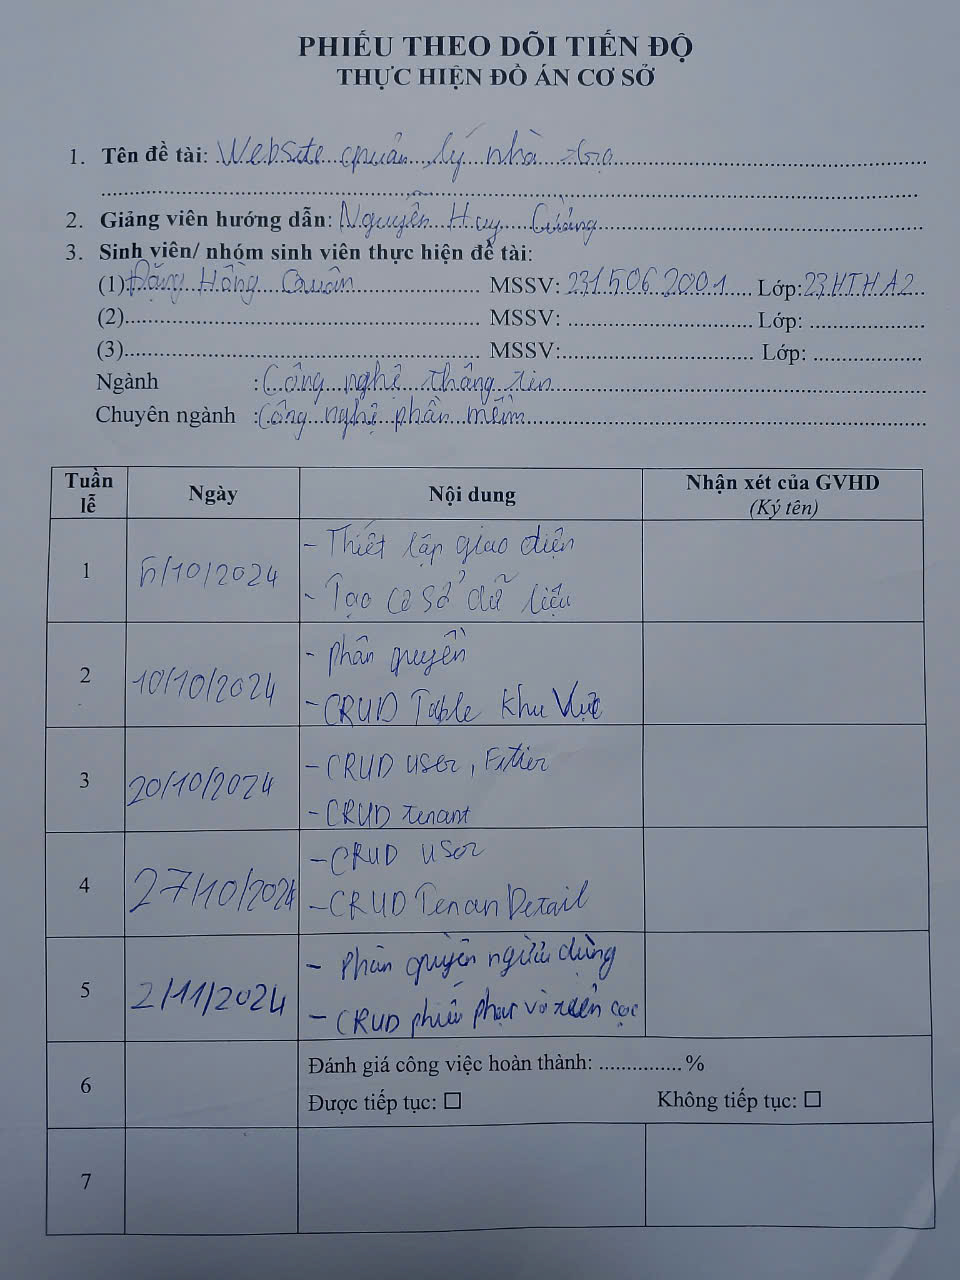 PHIẾU THEO DÕI TIẾN ĐỘ
THỰC HIỆN ĐỒ ÁN CƠ SỞ
1. Tên đề tài: Website quản lý nhà trọ
2. Giảng viên hướng dẫn: Nguyễn Huy Cường
3. Sinh viên/ nhóm sinh viên thực hiện đề tài:
(1) Đặng Hồng Quân MSSV: 2315062001 Lớp: 23HTHA2
(2) MSSV: Lớp:
(3) MSSV: Lớp:
Ngành : Công nghệ thông tin
Chuyên ngành : Công nghệ phần mềm
Tuần lễ Ngày Nội dung Nhận xét của GVHD (Ký tên)
1 5/10/2024 - Thiết lập giao diện
- Tạo cơ sở dữ liệu
2 10/10/2024 - phân quyền
- CRUD Table Khu Vực
3 20/10/2024 - CRUD user,
- CRUD tenant
4 27/10/2024 - CRUD user
- CRUD Tenan Detail
5 2/11/2024 - phân quyền người dùng
- CRUD phiếu phạt và tiền cọc
6 Đánh giá công việc hoàn thành: ............... %
Được tiếp tục: ☐ Không tiếp tục: ☐
7